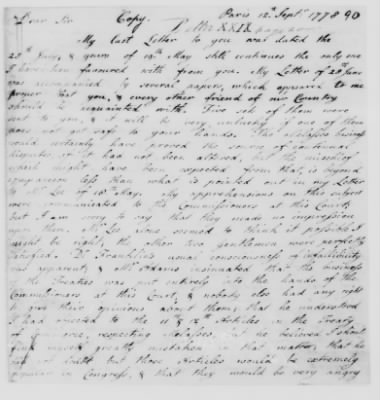 Paris 12th Septr. 1778 90
Dear Sir Copy.
Letter XXIX
My last Letter to you was dated the
20th June, & yours of 19th May still continues the only one
I have been favoured with from you. My Letter of 20th June
was accompanied by several papers, which appeared to me
proper that you, & every other friend of our Country
should be acquainted with. Five sets of them were
sent to you, & it will be very unlucky if one of them
does not get safe to your hands. The Molasses business
would certainly have proved the source of continual
disputes, if it had not been altered, but the mischief
which might have been expected from that, is beyond
comparison less than what is pointed out in my Letter
to Mr. Lee of 18th May. My apprehensions on this
were communicated to the Commissioners at this Court,
but I am sorry to say that they made no impression
upon them. Mr. Lee alone seemed to think it possible I
might be right, the other two Gentlemen were perfectly
satisfied. Dr. Franklin's usual consciousness of infallibility
was apparent, & Mr. Adams insinuated that the business
of the Treaties was put entirely into the hands of the
Commissioners at this Court, & nobody else had any right
to give their opinions about them; that he understood
I had objected to the 11th & 12th Articles in the Treaty
of Commerce, respecting Molasses, but he believed I should
find myself greatly mistaken in that matter, that he
did not doubt but those Articles would be extremely
popular in Congress, & that they would be very angry